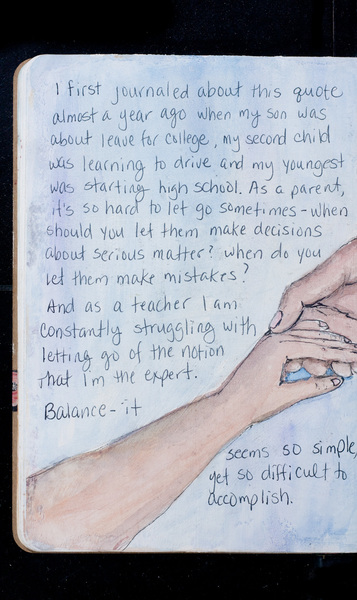 I first journaled about this quote
almost a year ago when my son was
about leave for college, my second child
was learning to drive and my youngest
was starting high school. As a parent,
it's so hard to let go sometimes - when
should you let them make decisions
about serious matter? when do you
let them make mistakes?
And as a teacher I am
constantly struggling with
letting go of the notion
that I'm the expert.
Balance - it
seems so simple,
yet so difficult to
accomplish.